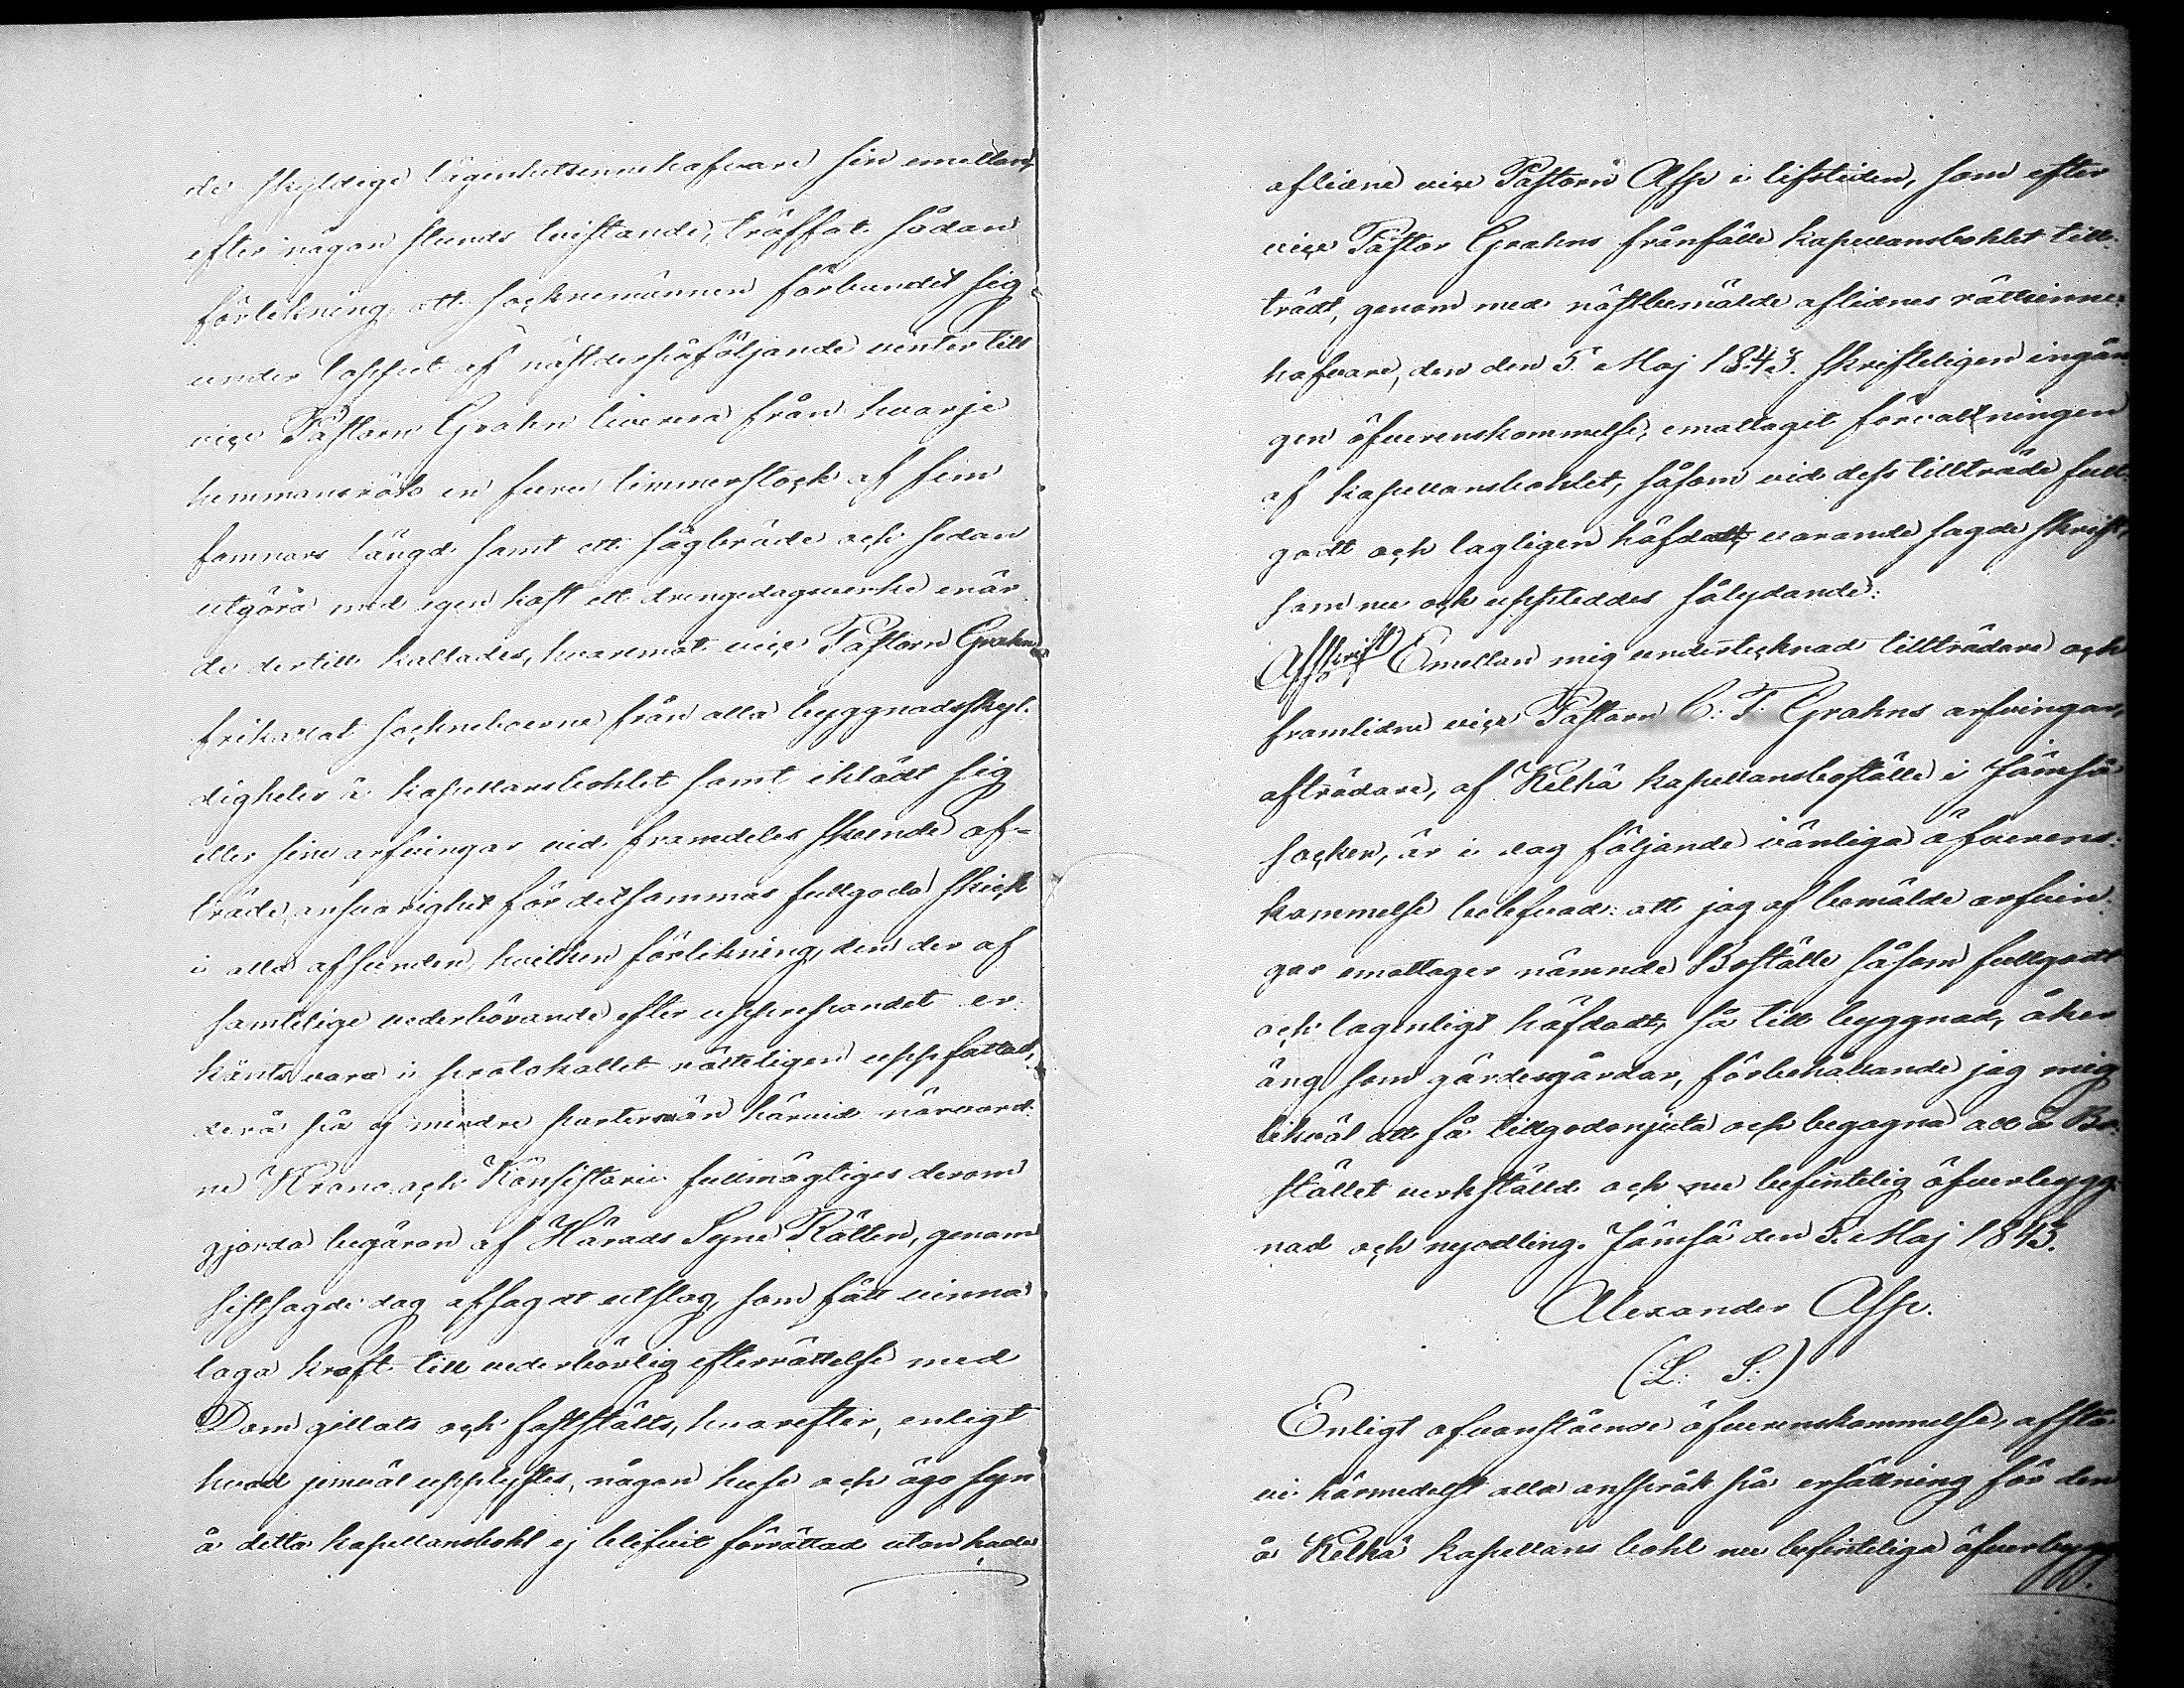 de skyldige lägenhetsinnehafvare sin emellan,
efter någon stunds tvistande, träffat sådan
förlikning, att socknemännen förbundit sig
under loppet af nästderpåföljande vinter till
vice Pastorn Grahn leverera från hvarje
hemmansrök en furu timmerstock af fem
famnars längd samt ett sågbräde och sedan
utgöra med egen kost ett drengedagsverke när
de dertill kallades, hvaremot vice Pastorn Grahn
frikallat sockneboerne från alla byggnadsskyl-
digheter å kapellansbohlet samt iklädt sig
eller sine arfvingar vid framdeles skeende af-
träde, ansvarighet för detsammas fullgoda skick
i alla afseenden, hvilken förlikning, den der af
samtelige vederbörande efter uppresandet er-
känts vara i protokollet rätteligen uppfattad,
derå på ej mindre parterne än härvid närvaran-
ne Krono och Konsistorii fullmägtiges derom
gjorda begäran af Härads Syne Rätten, genom
sistsagde dag afsagdt utslag, som fått vinna
laga kraft till vederbörlig efterrättelse med
Dom gillats och fastställts, hvarefter, enligt
hvad jemväl upplystes, någon huse och ägo syn
å detta kapellansbohl ej blifvit förrättad utan hade
aflidne vice Pastorn Asp i lifstiden, som efter
vice Pastor Grahns frånfälle kapellansbohlet till-
trädt, genom med nästbemälde aflidnes rättsinne-
hafvare, den den 5 Maj 1843. skrifteligen ingån-
gen öfverenskommelse, emottagit förvaltningen
af kapellansbohlet, såsom vid dess tillträde full-
godt och lagligen häfdadt, varande sagde skrift,
som nu ock uppteddes sålydande:
Afskrift Emellan mig undertecknad tillträdare och
framlidne vice Pastorn C: F: Grahns arfvingar,
afträdare, af Kelhä kapellansboställe i Jämsä
socken, är i dag följande vänliga öfverens-
kommelse belefvad: att jag af bemälde arfvin-
gar emottager nämnde Boställe såsom fullgodt
och lagenligt häfdadt, så till byggnad, åker
äng som gärdesgårdar, förbehållande jag mig
likväl att få tillgodonjuta och begagna all å Bo-
stället verkställd och nu befintelig öfverbygg-
nad och nyodling. Jämsä den 5. Maj 1843.
Alexander Asp.
(L. S.)
Enligt ofvanstående öfverenskommelse, afstå
vi härmedelst alla anspråk på ersättning för den
å Kelhä kapellans bohl nu befinteliga öfverbygg-